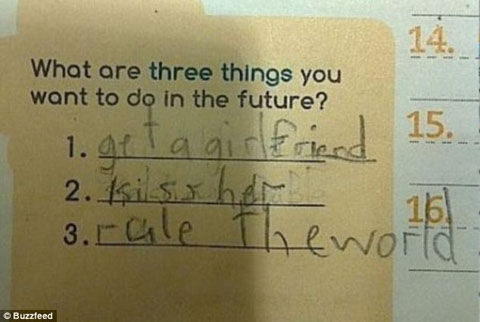 14.
What are three things you
want to do in the future?
15.
1. get a girlfriend
2. kissx her
16.
3. rule the world
© Buzzfeed